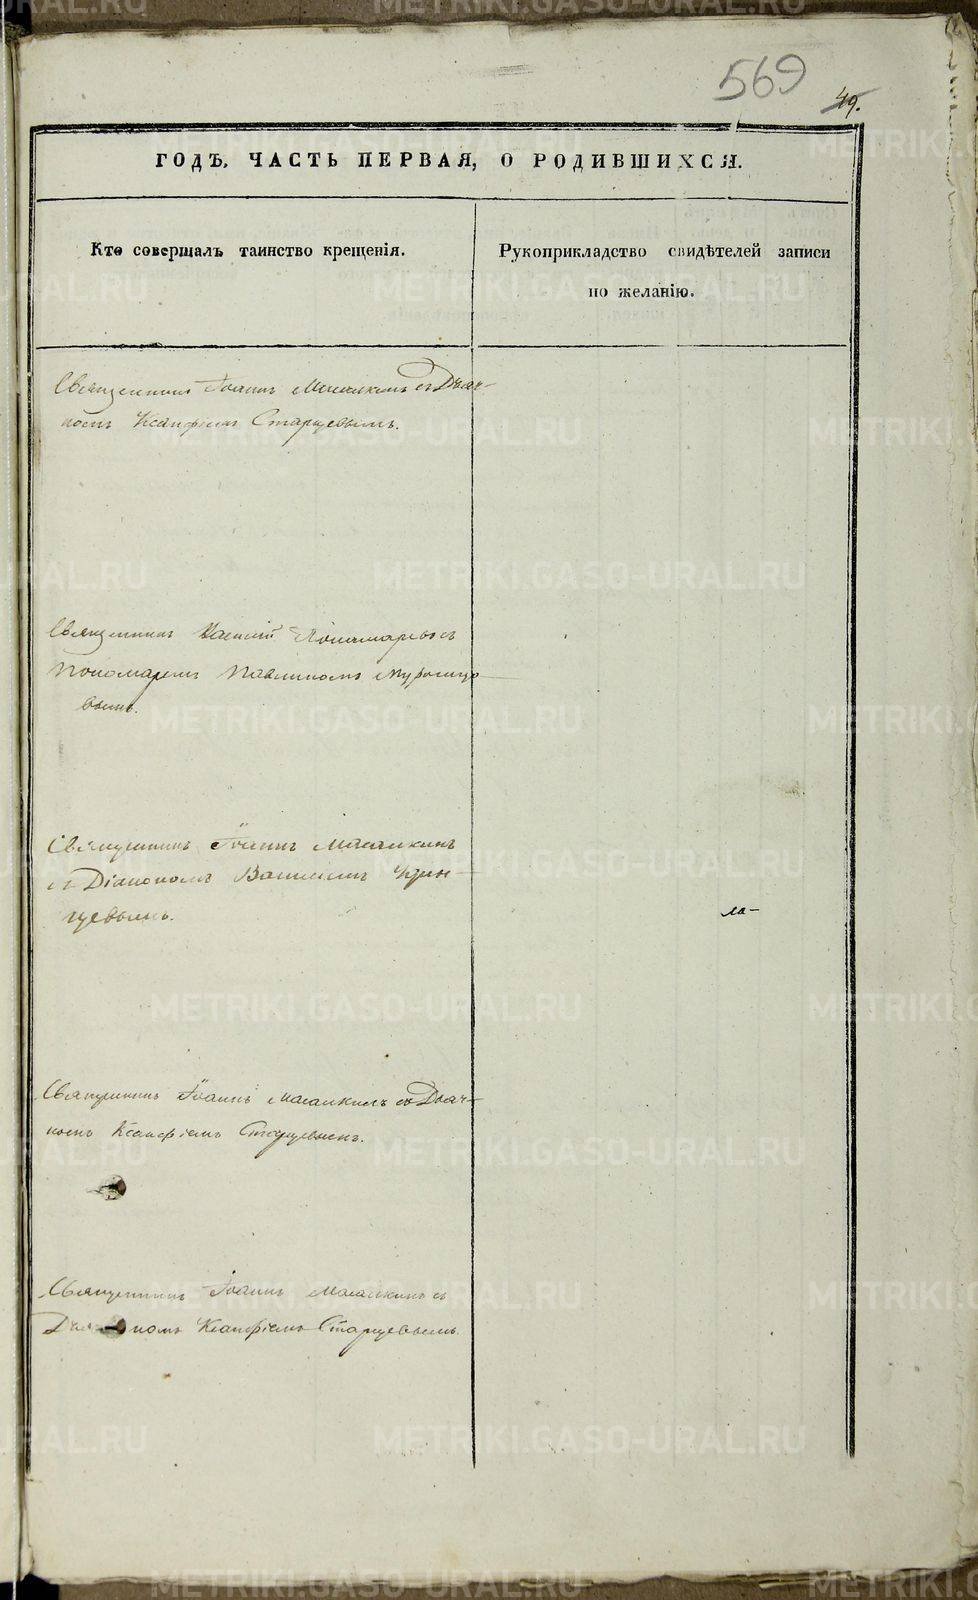 569
49.
ГОДЪ, ЧАСТЬ ПЕРВАЯ, О РОДИВШИХСЯ.
Кто совершалъ таинство крещенія.
Рукоприкладство свидѣтелей записи
по желанію.
Священникъ Іоаннъ Масалкинъ съ Дьяч-
комъ Ксанфіемъ Старцевымъ.
Священникъ Василій Пономаревъ съ
Пономаремъ Павлиномъ
вымъ.
Священникъ Іоаннъ Масалкинъ
съ Діакономъ Василіемъ
цевымъ.
ла-
Священникъ Іоаннъ Масалкинъ съ Дьяч-
комъ Ксанфіемъ Старцевымъ.
Священникъ Іоаннъ Масалкинъ съ
Дьячкомъ Ксанфіемъ Старцевымъ.
METRIKI.GASO-URAL.RU